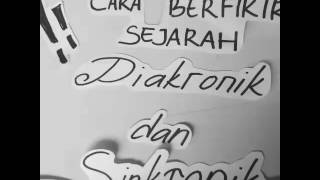 !!
CARA BERFIKIR
SEJARAH
Diakronik
dan
Sinkronik